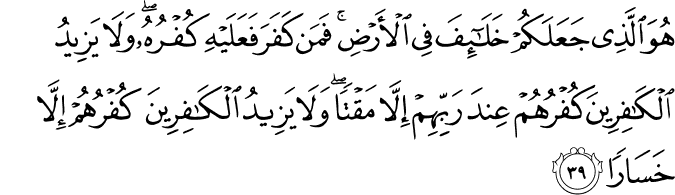 هُوَ ٱلَّذِى جَعَلَكُمْ خَلَـٰٓئِفَ فِى ٱلْأَرْضِ ۚ فَمَن كَفَرَ فَعَلَيْهِ كُفْرُهُۥ ۖ وَلَا يَزِيدُ
ٱلْكَـٰفِرِينَ كُفْرُهُمْ عِندَ رَبِّهِمْ إِلَّا مَقْتًا ۖ وَلَا يَزِيدُ ٱلْكَـٰفِرِينَ كُفْرُهُمْ إِلَّا
خَسَارًا ٣٩